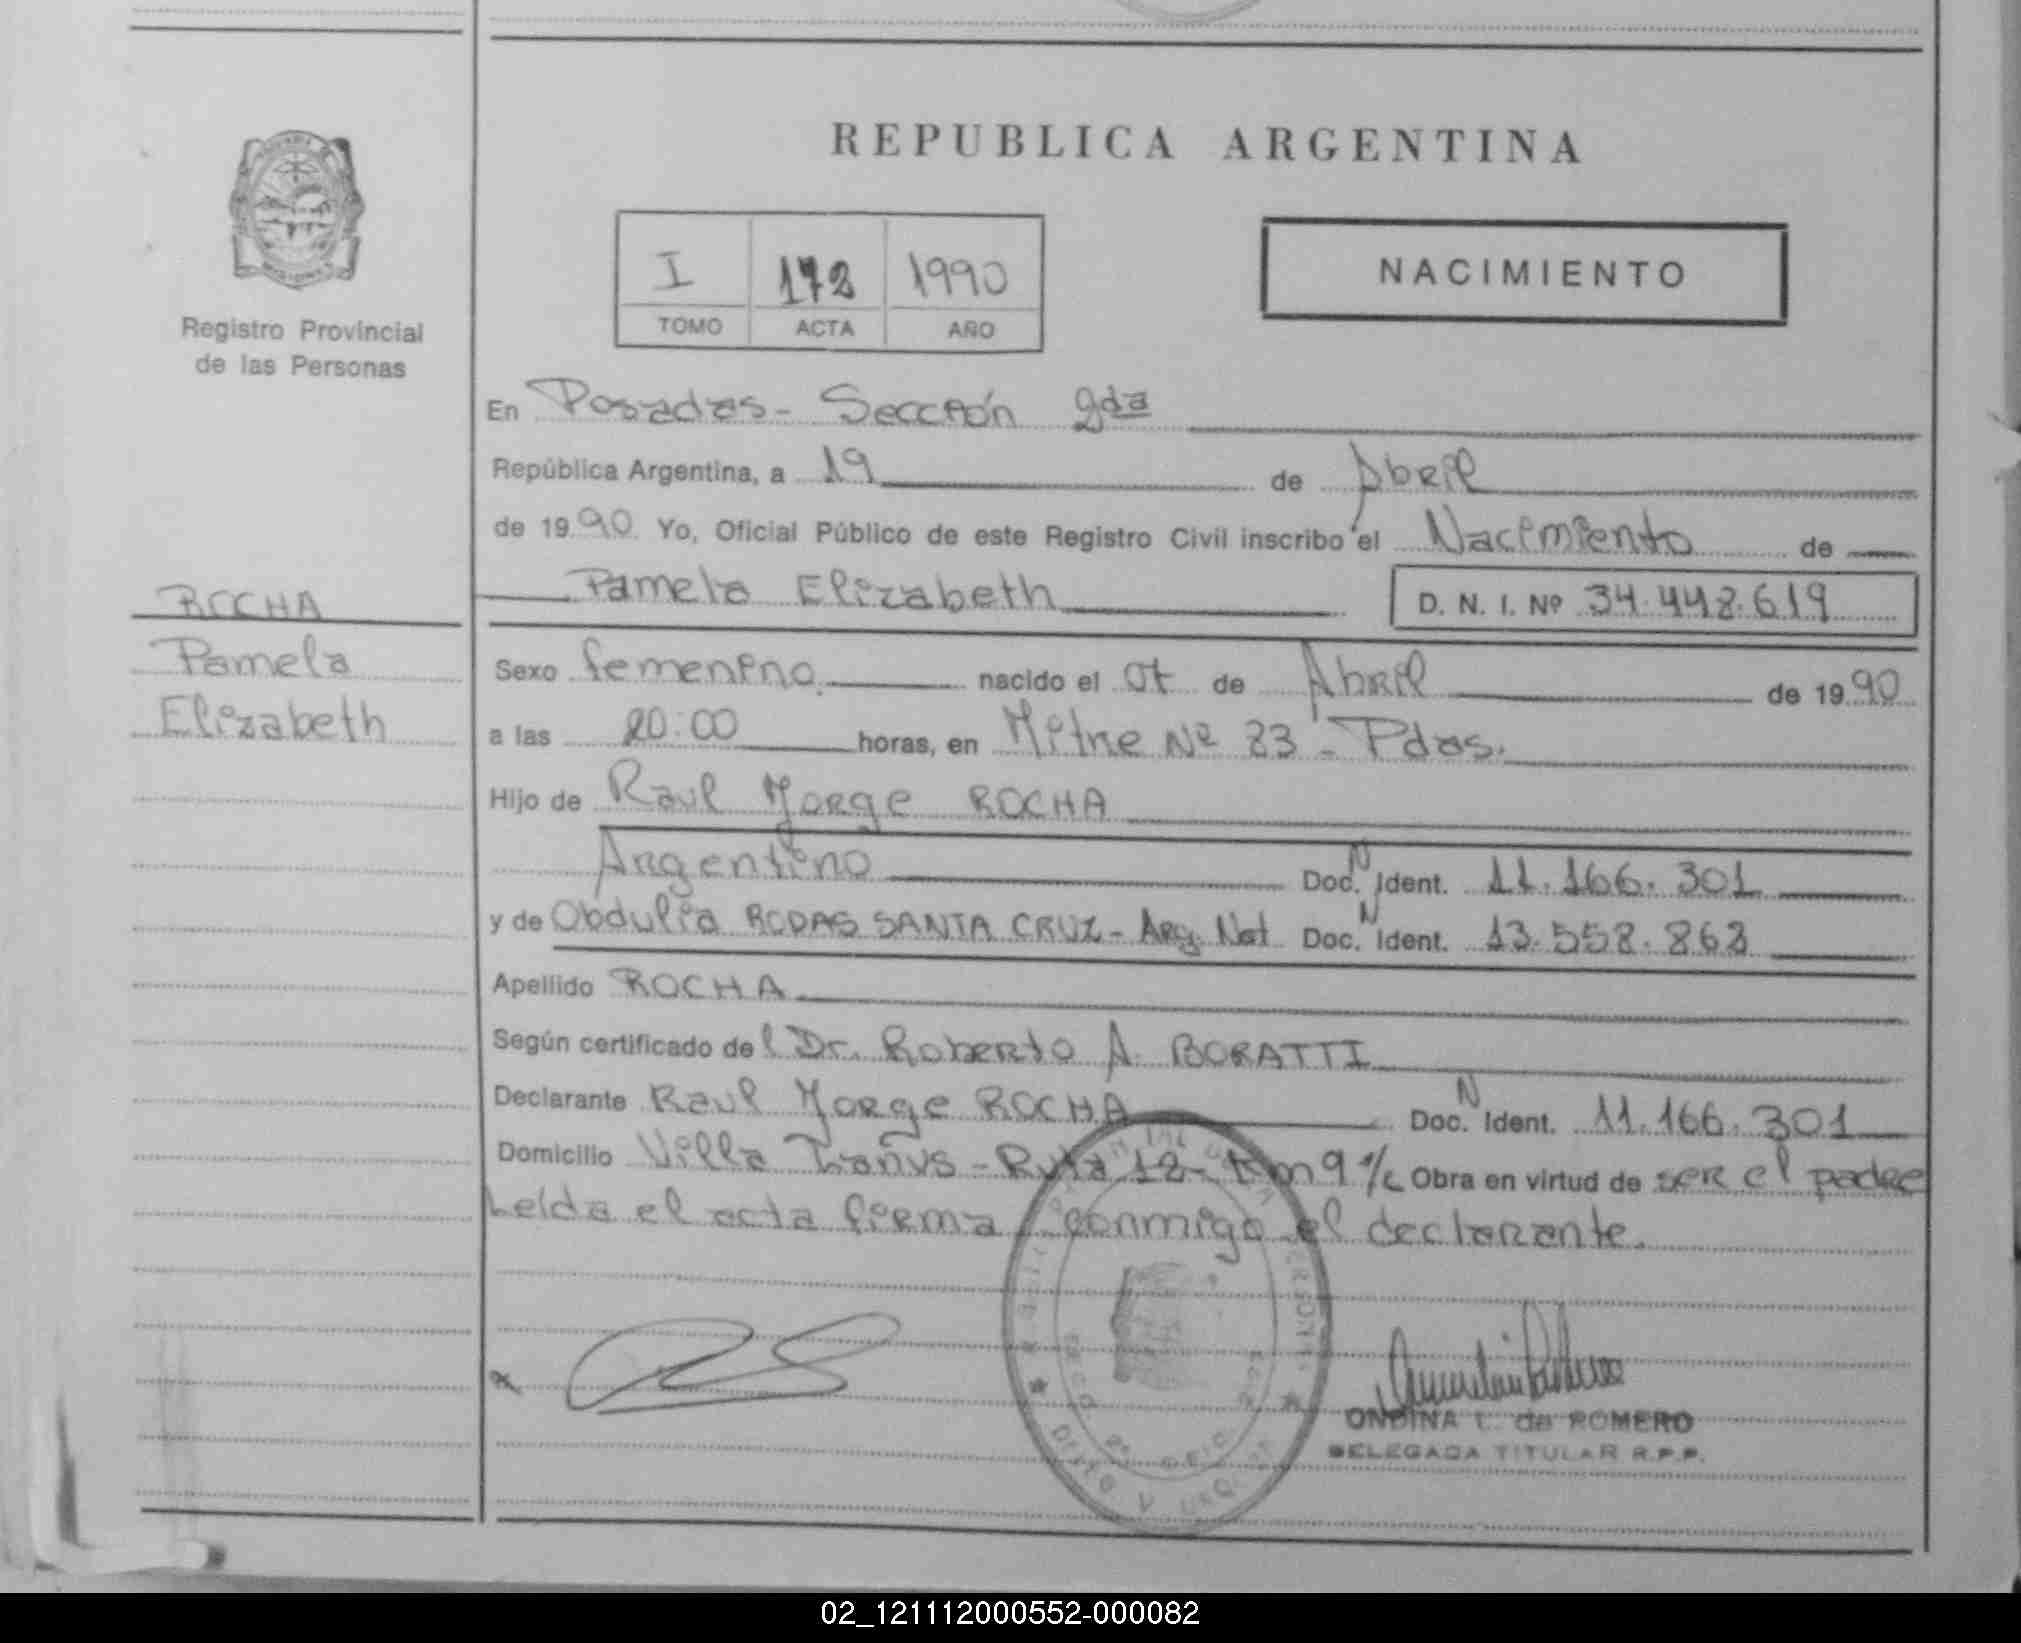 REPUBLICA ARGENTINA
I 172 1990
TOMO ACTA AÑO
NACIMIENTO
Registro Provincial
de las Personas
ROCHA
Pamela
Elizabeth
En Posadas - Sección 2da
República Argentina, a 19 de Abril
de 1990 Yo, Oficial Público de este Registro Civil inscribo el Nacimiento de
Pamela Elizabeth D. N. I. Nº 34.448.619
Sexo femenino nacido el 07 de Abril de 1990
a las 20:00 horas, en Mitre Nº 23 - Pdas.
Hijo de Raul Jorge ROCHA
Argentino Doc. N Ident. 11.166.301
y de Obdulia RODAS SANTA CRUZ - Arg. Nat Doc. N Ident. 13.558.868
Apellido ROCHA
Según certificado del Dr. Roberto A. BORATTI
Declarante Raul Jorge ROCHA Doc. N Ident. 11.166.301
Domicilio Villa Lañus - Ruta 12 - Km 9 1/2 Obra en virtud de ser el padre
Leída el acta firma conmigo el declarante.
ONDINA L. de ROMERO
DELEGADA TITULAR R.P.P.
02_121112000552-000082